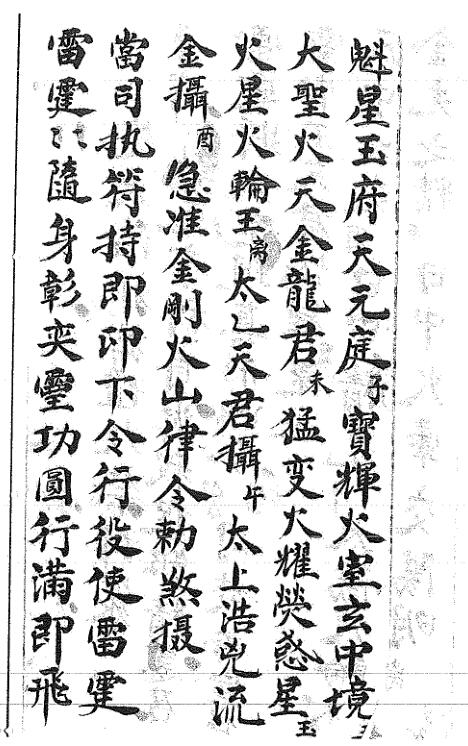 魁星玉府天元庭子寶輝火室玄中境
大聖火天金龍君未猛变火耀熒惑星玉
火星火輪王离太乙天君攝午太上浩兇流
金攝酉急准金剛火山律令勅煞摄
當司执符持即印下令行役使雷霆
雷霆〻隨身彰奕靈功圓行滿即飛